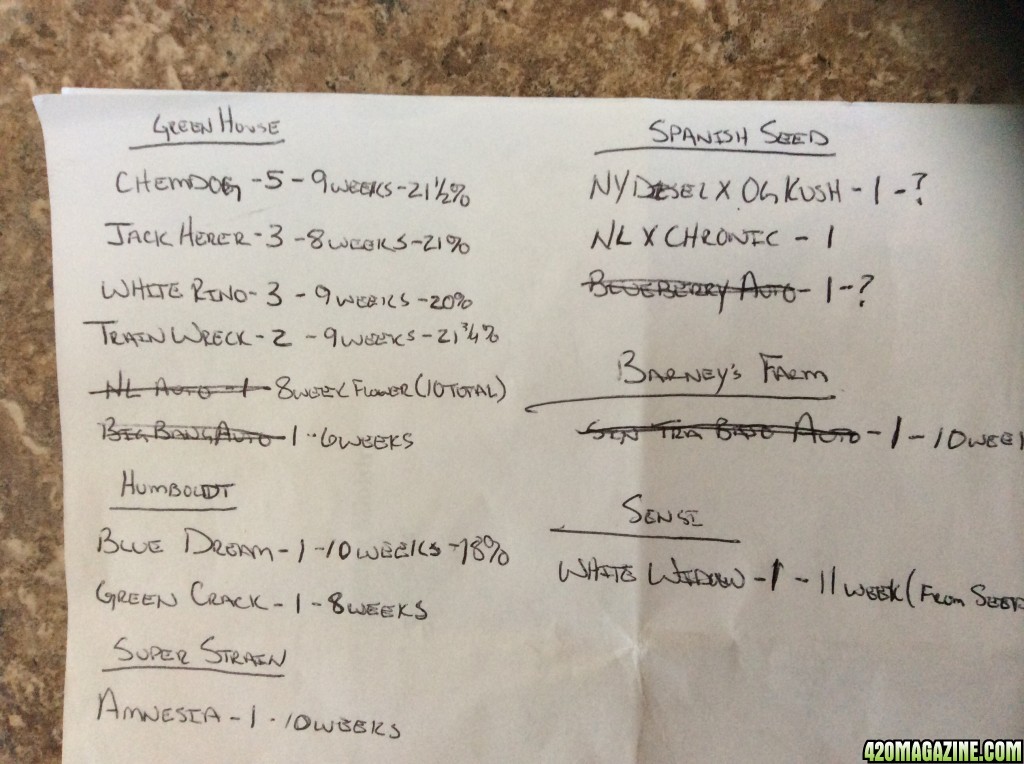 GREEN HOUSE
CHEMDOG - 5 - 9 WEEKS - 21 1/2%
JACK HERER - 3 - 8 WEEKS - 21%
WHITE RINO - 3 - 9 WEEKS - 20%
TRAIN WRECK - 2 - 9 WEEKS - 21 3/4%
NL AUTO - 1 - 8 WEEK FLOWER (10 TOTAL)
BIG BANG AUTO - 1 - 6 WEEKS
HUMBOLDT
BLUE DREAM - 1 - 10 WEEKS - 18%
GREEN CRACK - 1 - 8 WEEKS
SUPER STRAIN
AMNESIA - 1 - 10 WEEKS
SPANISH SEED
NY DIESEL X OG KUSH - 1 - ?
NL X CHRONIC - 1
BLUEBERRY AUTO - 1 - ?
BARNEY'S FARM
AUTO - 1 - 10 WEEK
SENSI
WHITE WIDOW - 1 - 11 WEEK (FROM SEED
420MAGAZINE.COM